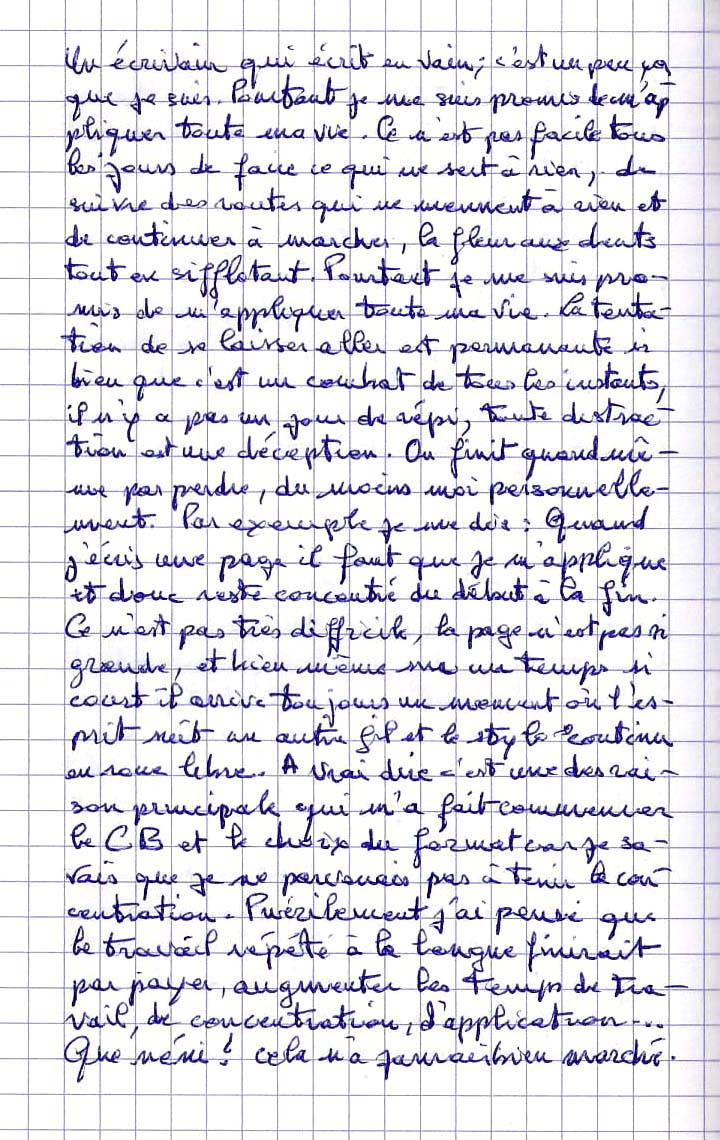 Un écrivain qui écrit en vain; c'est un peu ça
que je suis. Pourtant je me suis promis de m'ap
pliquer toute ma vie. Ce n'est pas facile tous
les jours de faire ce qui ne sert à rien, de
suivre des routes qui ne mennent à rien et
de continuer à marcher, la fleur aux dents
tout en sifflotant. Pourtant je me suis pro-
mis de m'appliquer toute ma vie. La tenta-
tion de se laisser aller est permanante si
bien que c'est un combat de tous les instants,
il n'y a pas un jour de répi, toute distrac-
tion est une déception. On finit quand mê-
me par perdre, du moins moi personnelle-
ment. Par exemple je me dis : Quand
j'écris une page il faut que je m'applique
et donc reste concentré du début à la fin.
Ce n'est pas très difficile, la page n'est pas si
grande, et bien même sur un temps si
court il arrive toujours un moment où l'es-
prit suit un autre fil et le stylo continu
en roue libre. A vrai dire c'est une des rai-
son principale qui m'a fait commencer
le CB et le choix du format car je sa-
vais que je ne parvenais pas à tenir la con
centration. Puérilement j'ai pensé que
le travail répété à la longue finirait
par payer, augmenter les temps de tra-
vail, de concentration, d'application...
Que néni ! cela n'a jamais bien marché.